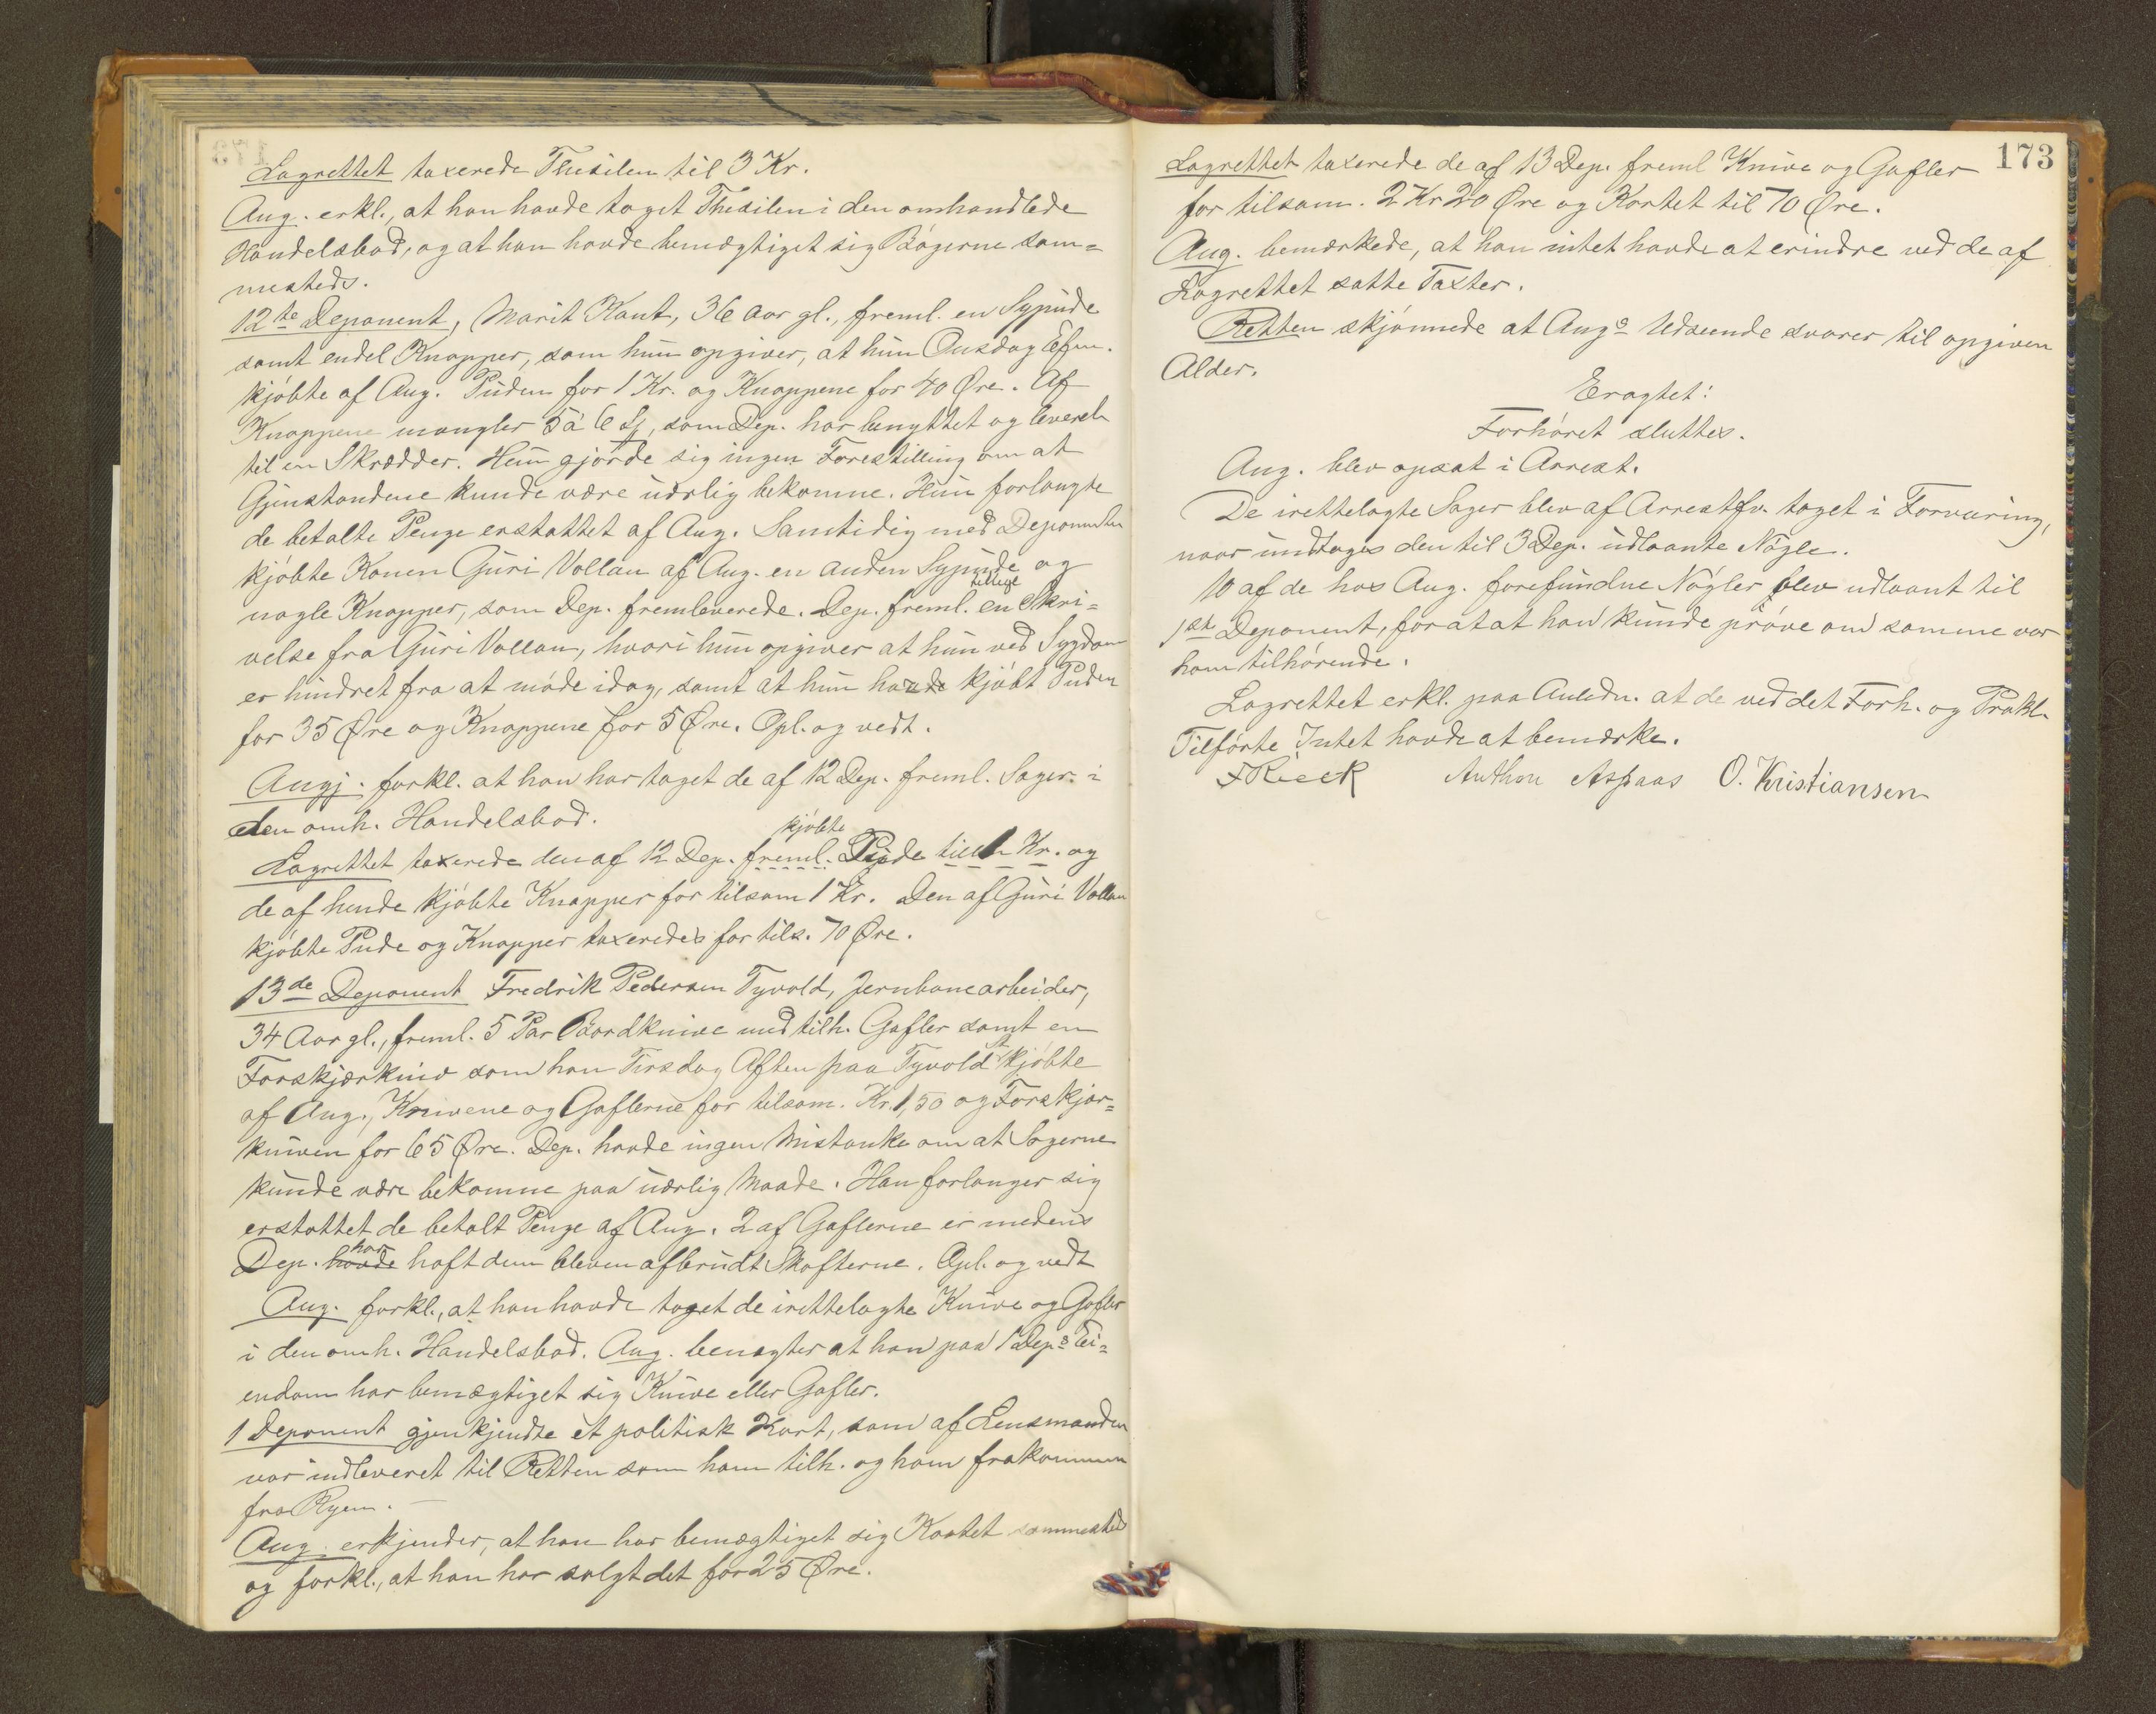 Lagrettet taxerede Thesilen til 3 Kr.
Ang. erkl., at han havde taget Thesilen i den omhandlede
Handelsbod, og at han havde bemægtiget sig Bøgerne sam=
mesteds.
12te Deponent, Marit Kant, 36 Aar gl., freml. en Sypude
samt endel Knapper, som hun opgiver, at hun Onsdag Efm.
kjøbte af Ang. Puden for 1 Kr. og Knappene for 40 Øre. Af
Knappene mangler 5 à 6 St, som Dep. har benyttet og leveret
til en Skrædder. Hun gjorde sig ingen Forestilling om at
Gjenstandene kunde være uærlig bekomne. Hun forlangte
de betalte Penge erstattet af Ang. Samtidig med Deponenten
kjøbte Konen Guri Vollan af Ang. en anden Sypude og
nogle Knapper, som Dep. fremleverede. Dep. freml. tillige en Skri=
velse fra Guri Vollan, hvori hun opgiver at hun ved Sygdom
er hindret fra at møde idag, samt at hun havde kjøbt Puden
for 35 Øre og Knappene for 5 Øre. Opl. og vedt.
Angj. forkl. at han har taget de af 12 Dep. freml. Sager i
den omh. Handelsbod.
Lagrettet taxerede den af 12 Dep. freml. kjøbte Pude till 1 Kr. og
de af hende kjøbte Knapper for tilsam 1 Kr. Den af Guri Vollan
kjøbte Pude og Knapper taxeredes for tils. 70 Øre.
13de Deponent Fredrik Pedersen Tyvold, Jernbanearbeider,
34 Aar gl., freml. 5 Par Bordknive med tilh. Gafler samt en
Forskjærkniv som han Tirsdag Aften paa Tyvold st kjøbte
af Ang., Knivene og Gaflerne for tilsam. Kr. 1,50 og Forskjær=
kniven for 65 Øre. Dep. havde ingen Mistanke om at Sagerne
kunde være bekomne paa uærlig Maade. Han forlanger sig
erstattet de betalt Penge af Ang. 2 af Gaflerne er medens
Dep. havde har haft dem bleven afbrudt Skafterne. Opl. og vedt
Ang. forkl., at han havde taget de irettelagte Knive og Gafler
i den omh. Handelsbod. Ang. benægter at han paa 1 Deps Ei=
endom har bemægtiget sig Knive eller Gafler.
1 Deponent gjenkjendte et politisk Kart, som af Lensmanden
var indleveret til Retten som ham tilh. og ham frakommen
fra Ryen. —
Ang. erkjender, at han har bemægtiget sig Kartet sammesteds
og forkl., at han har solgt det for 25 Øre.
173
Lagrettet taxerede de af 13 Dep. freml Knive og Gafler
for tilsam. 2 Kr 20 Øre og Kartet til 70 Øre.
Ang. bemærkede, at han intet havde at erindre ved de af
Lagrettet satte Taxter.
Retten skjønnede at Angs Udseende svarer til opgiven
Alder.
Eragtet:
Forhøret sluttes.
Ang. blev opsat i Arrest.
De irettelagte Sager blev af Arrestfv. taget i Forvaring,
naar undtages den til 3 Dep. udlaante Nøgle.
10 af de hos Ang. forefundne Nøgler blev udlaant til
1ste Deponent, forat at han kunde prøve om samme var
ham tilhørende.
Lagrettet erkl. paa Anledn. at de ved det Forh. og Protkl.
Tilførte Intet havde at bemærke.
F Rieck Anthon Aspaas O. Kristiansen